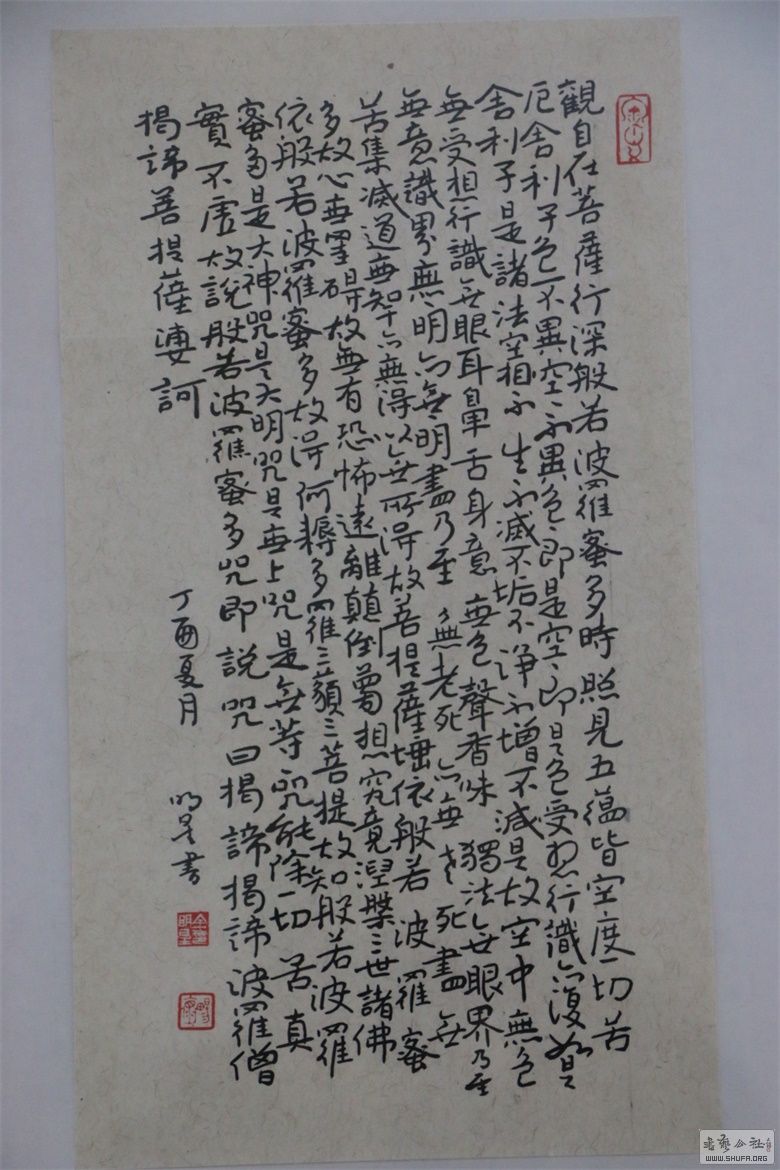 觀自在菩薩行深般若波羅蜜多時照見五蘊皆空度一切苦
厄舍利子色不異空〻不異色〻即是空〻即是色受想行識亦復如是
舍利子是諸法空相不生不滅不垢不淨不增不減是故空中無色
無受想行識無眼耳鼻舌身意無色聲香味觸法無眼界乃至
無意識界無〻明亦無〻明盡乃至無老死亦無老死盡無
苦集滅道無智亦無得以無所得故菩提薩埵依般若波羅蜜
多故心無罣碍故無有恐怖遠離顛倒夢想究竟涅槃三世諸佛
依般若波羅蜜多故得阿耨多羅三藐三菩提故知般若波羅
蜜多是大神咒是大明咒是無上咒是無等咒能除一切苦真
實不虛故說般若波羅蜜多咒即說咒曰揭諦揭諦波羅僧
揭諦菩提薩婆訶
丁酉夏月
明星書
書藝公社
WWW.SHUFA.ORG